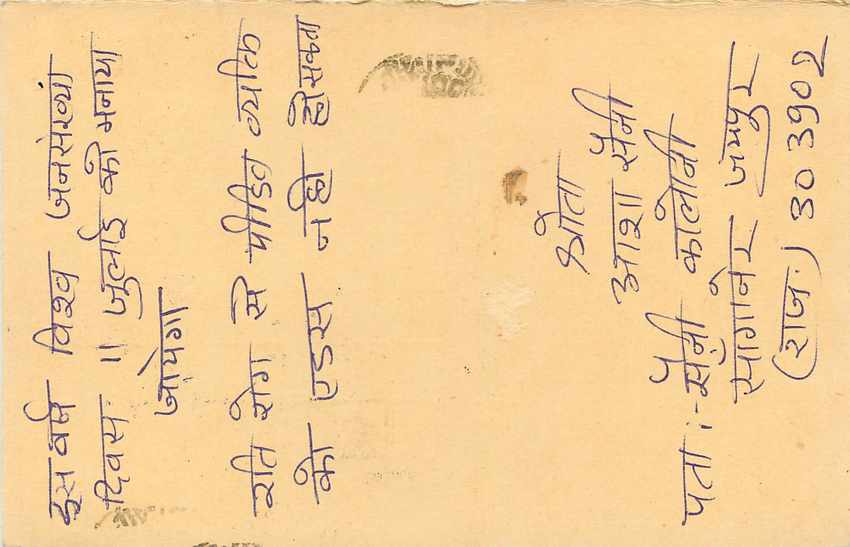 इस वर्ष विश्व जनसंख्या
दिवस 11 जुलाई को मनाया
जायेगा
यति रोग से पीडित व्यक्ति
को एडस नही हो सकता
श्रोता
आशा सैनी
पता :- सैनी कालोनी
सागानेर जयपुर
(राज.) 303902